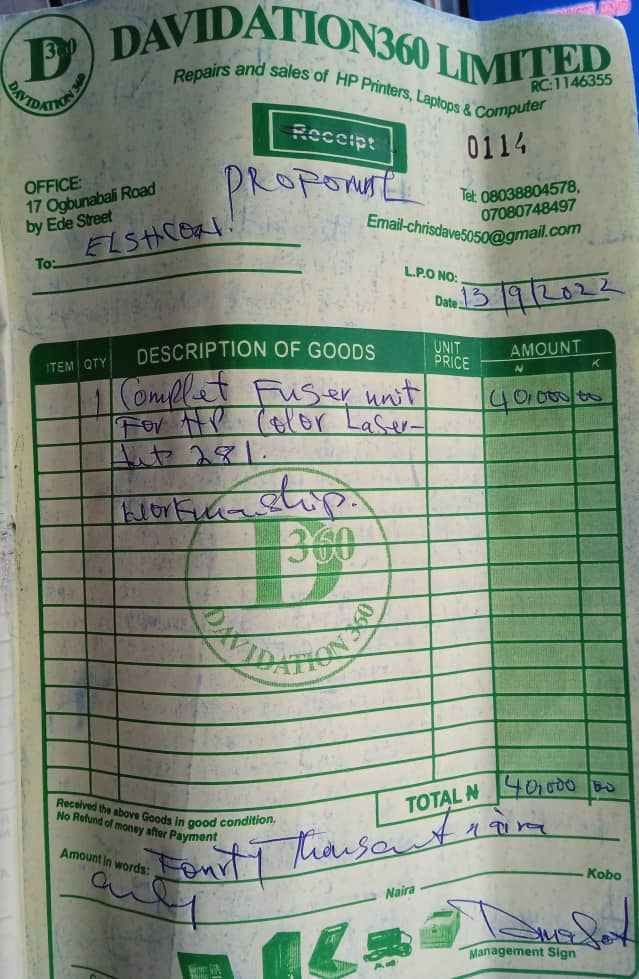 D360
DAVIDATION 360
DAVIDATION360 LIMITED
RC:1146355
Repairs and sales of HP Printers, Laptops & Computer
Receipt
0114
OFFICE:
17 Ogbunabali Road
by Ede Street
Tel: 08038804578,
07080748497
Email-chrisdave5050@gmail.com
To: ELSHCON!
L.P.O NO:
Date 13/9/2022
ITEM QTY DESCRIPTION OF GOODS UNIT PRICE AMOUNT
₦ K
1 Complet Fuser unit 40,000 00
For HP Color Laser-
Jet 281.
Workmanship.
D360
DAVIDATION 360
TOTAL ₦ 40,000 00
Received the above Goods in good condition.
No Refund of money after Payment
Amount in words: Fourty Thousant naira
only Naira Kobo
Management Sign